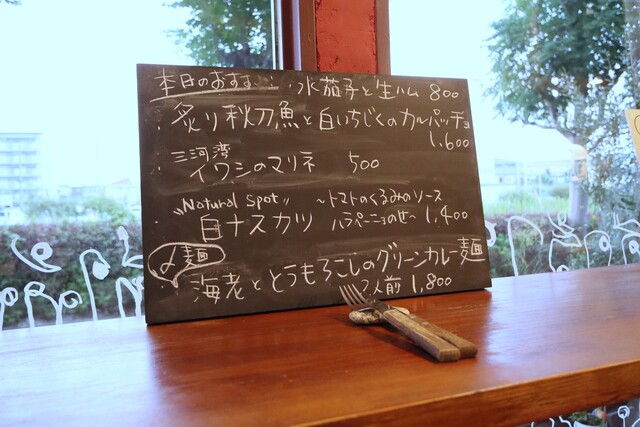 本日のおすすめ
・水茄子と生ハム 800
・炙り秋刀魚と白いちじくのカルパッチョ
1,600
・三河湾
イワシのマリネ 500
"Natural Spot" 〜トマトのくるみのソース
・白ナスカツ ハラペーニョのせ〜 1,400
〆麺
・海老ととうもろこしのグリーンカレー麺
2人前 1,800